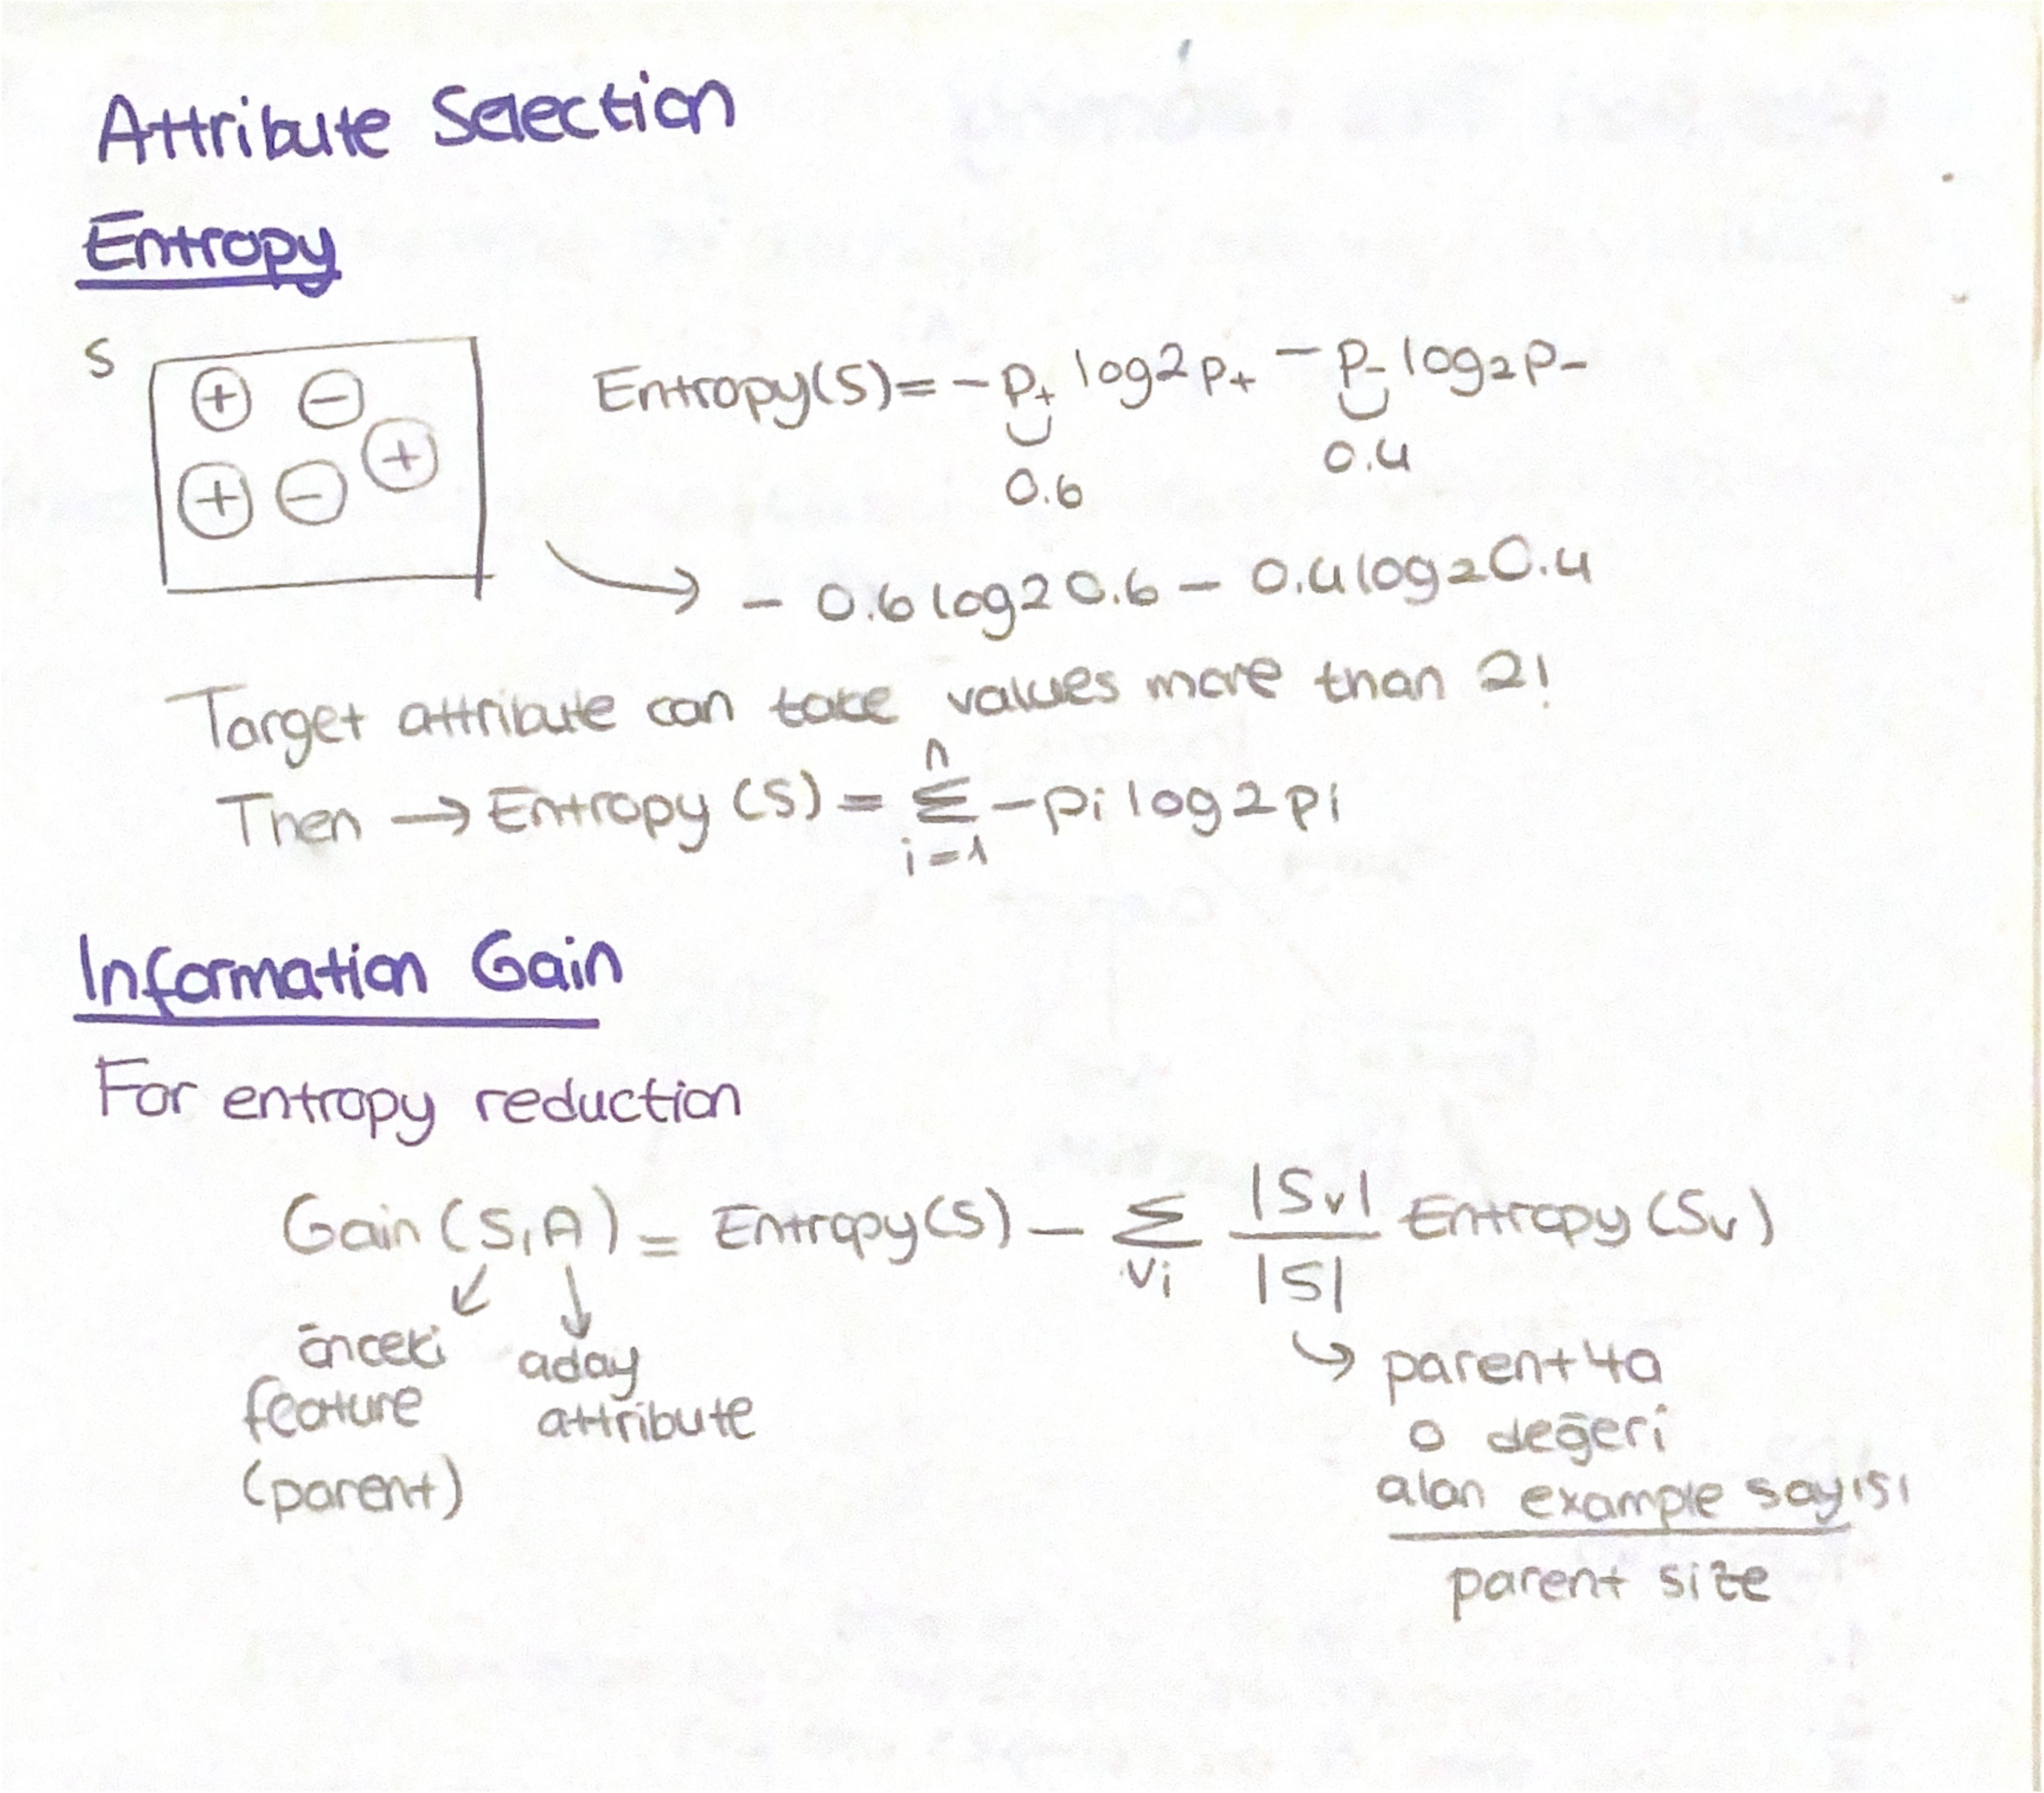 Attribute Selection
Entropy
S
+ −
+
+ −
Entropy(S) = - P+ log2 P+ - P- log2 P-
0.6 0.4
- 0.6 log2 0.6 - 0.4 log2 0.4
Target attribute can take values more than 2!
Then → Entropy (S) = n Σ i=1 - pi log2 pi
Information Gain
For entropy reduction
Gain (S, A) = Entropy(S) - Σ vi |Sv| / |S| Entropy (Sv)
önceki aday
feature attribute
(parent)
o değeri
alan example sayısı
parent size